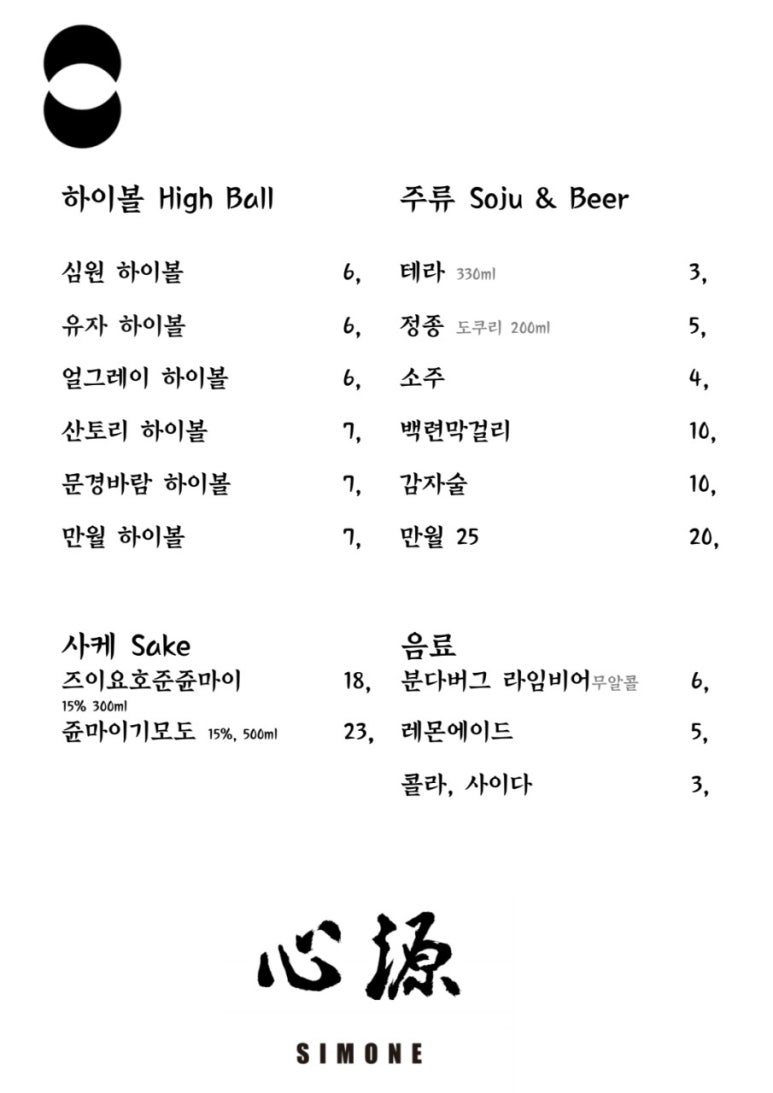 하이볼 High Ball
심원 하이볼 6,
유자 하이볼 6,
얼그레이 하이볼 6,
산토리 하이볼 7,
문경바람 하이볼 7,
만월 하이볼 7,
주류 Soju & Beer
테라 330ml 3,
정종 도쿠리 200ml 5,
소주 4,
백련막걸리 10,
감자술 10,
만월 25 20,
사케 Sake
즈이요호준쥰마이 18,
15% 300ml
쥰마이기모도 15%, 500ml 23,
음료
분다버그 라임비어무알콜 6,
레몬에이드 5,
콜라, 사이다 3,
心源
SIMONE